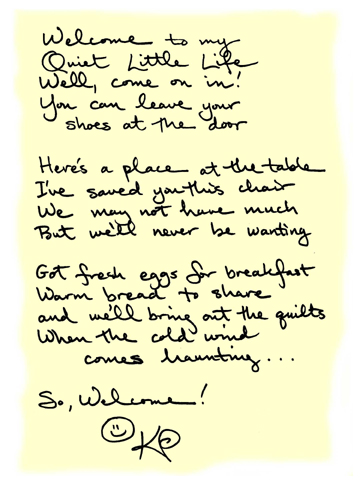 Welcome to my
Quiet Little Life
Well, come on in!
You can leave your
shoes at the door
Here's a place at the table
I've saved you this chair
We may not have much
But we'll never be wanting
Got fresh eggs for breakfast
Warm bread to share
and we'll bring out the quilts
When the cold wind
comes haunting...
So, Welcome!